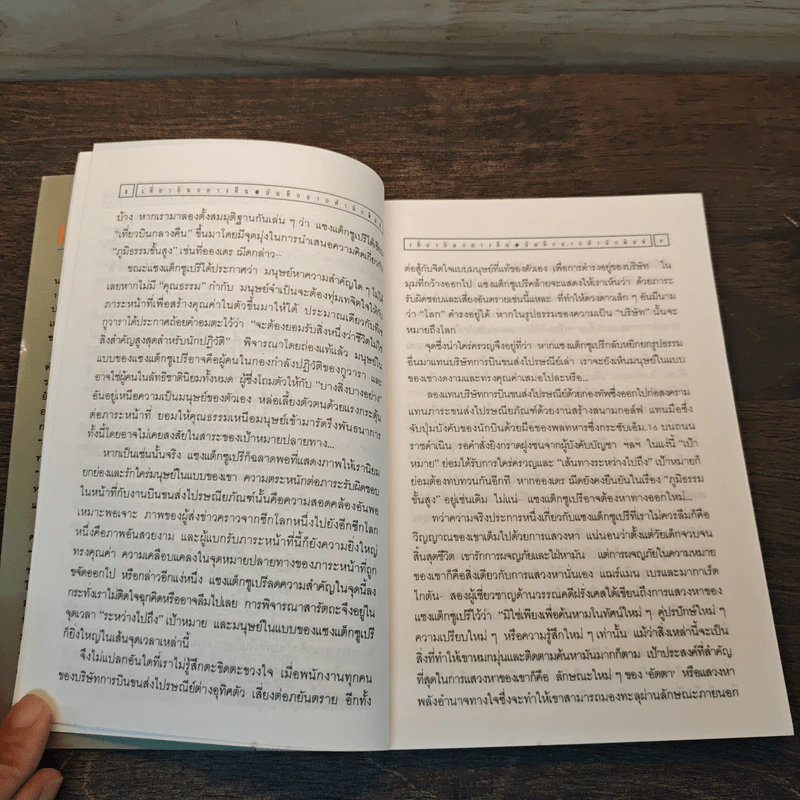 ๘ เที่ยวบินกลางคืน ● บันทึกจากสำนักพิมพ์
บ้าง หากเรามาลองตั้งสมมุติฐานกันเล่น ๆ ว่า แซงแต็กซูเปรีได้เขียน
“เที่ยวบินกลางคืน” ขึ้นมาโดยมีจุดมุ่งในการนำเสนอความคิดเกี่ยวกับ
“ภูมิธรรมขั้นสูง” เช่นที่ออองเดร ฌีดกล่าว–
ขณะแซงแต็กซูเปรีได้ประกาศว่า มนุษย์หาความสำคัญใด ๆ ไม่ได้
เลยหากไม่มี “คุณธรรม” กำกับ มนุษย์จำเป็นจะต้องทุ่มเทจิตใจให้กับ
ภาระหน้าที่เพื่อสร้างคุณค่าในตัวขึ้นมาให้ได้ ประมาณเดียวกับที่เช
กูวาราได้ประกาศถ้อยคำอมตะไว้ว่า “จะต้องยอมรับสิ่งหนึ่งว่าชีวิตไม่ใช่
สิ่งสำคัญสูงสุดสำหรับนักปฏิวัติ” พิจารณาโดยถ่องแท้แล้ว มนุษย์ใน
แบบของแซงแต็กซูเปรีอาจคือผู้คนในกองกำลังปฏิวัติของกูวารา และ
อาจใช่ผู้คนในลัทธิชาตินิยมทั้งหมด ผู้ซึ่งโถมตัวให้กับ “บางสิ่งบางอย่าง”
อันอยู่เหนือความเป็นมนุษย์ของตัวเอง หล่อเลี้ยงตัวตนด้วยแรงกระตุ้น
ต่อภาระหน้าที่ ยอมให้คุณธรรมเหนือมนุษย์เข้ามารัดรึงพันธนาการ
ทั้งนี้โดยอาจไม่เคยสงสัยในสาระของเป้าหมายปลายทาง...
หากเป็นเช่นนั้นจริง แซงแต็กซูเปรีก็ฉลาดพอที่แสดงภาพให้เรานิยม
ยกย่องและรักใคร่มนุษย์ในแบบของเขา ความตระหนักต่อภาระรับผิดชอบ
ในหน้าที่กับงานบินขนส่งไปรษณียภัณฑ์นั้นคือความสอดคล้องอันพอ
เหมาะพอเจาะ ภาพของผู้ส่งข่าวคราวจากซีกโลกหนึ่งไปยังอีกซีกโลก
หนึ่งคือภาพอันสวยงาม และผู้แบกรับภาระหน้าที่นี้ก็ยังความยิ่งใหญ่
ทรงคุณค่า ความเคลือบแคลงในจุดหมายปลายทางของภาระหน้าที่ถูก
ขจัดออกไป หรือกล่าวอีกแง่หนึ่ง แซงแต็กซูเปรีลดความสำคัญในจุดนี้ลง
กระทั่งเราไม่ติดใจฉุกคิดหรืออาจลืมไปเลย การพิจารณาสารัตถะจึงอยู่ใน
จุดเวลา “ระหว่างไปถึง” เป้าหมาย และมนุษย์ในแบบของแซงแต็กซูเปรี
ก็ยิ่งใหญ่ในเส้นจุดเวลาเหล่านี้
จึงไม่แปลกอันใดที่เราไม่รู้สึกตะขิดตะขวงใจ เมื่อพนักงานทุกคน
ของบริษัทการบินขนส่งไปรษณีย์ต่างอุทิศตัว เสี่ยงต่อภยันตราย อีกทั้ง
เที่ยวบินกลางคืน ● บันทึกจากสำนักพิมพ์ ๙
ต่อสู้กับจิตใจแบบมนุษย์ที่แท้ของตัวเอง เพื่อการดำรงอยู่ของบริษัท ใน
มุมที่กว้างออกไป แซงแต็กซูเปรีคล้ายจะแสดงให้เราเห็นว่า ด้วยภาระ
รับผิดชอบและเสี่ยงอันตรายเช่นนี้แหละ ที่ทำให้ดวงดาวเล็ก ๆ อันมีนาม
ว่า “โลก” ดำรงอยู่ได้ หากในรูปธรรมของความเป็น “บริษัท” นั้นจะ
หมายถึงโลก
จุดซึ่งน่าใคร่ครวญจึงอยู่ที่ว่า หากแซงแต็กซูเปรีกลับหยิบยกรูปธรรม
อื่นมาแทนบริษัทการบินขนส่งไปรษณีย์เล่า เราจะยังเห็นมนุษย์ในแบบ
ของเขางดงามและทรงคุณค่าเสมอไปละหรือ...
ลองแทนบริษัทการบินขนส่งไปรษณีย์ด้วยกองทัพซึ่งออกไปก่อสงคราม
แทนภาระขนส่งไปรษณียภัณฑ์ด้วยงานสร้างสนามกอล์ฟ แทนมือซึ่ง
จับปุ่มบังคับของนักบินด้วยมือของพลทหารซึ่งกระชับเอ็ม.16 บนถนน
ราชดำเนิน รอคำสั่งยิงกราดฝูงชนจากผู้บังคับบัญชา ฯลฯ ในแง่นี้ “เป้า
หมาย” ย่อมได้รับการใคร่ครวญและ “เส้นทางระหว่างไปถึง” เป้าหมายก็
ย่อมต้องทบทวนกันอีกที หากอองเดร ฌีดยังคงยืนยันในเรื่อง “ภูมิธรรม
ขั้นสูง” อยู่เช่นเดิม ไม่แน่- แซงแต็กซูเปรีอาจต้องหาทางออกใหม่...
ทว่าความจริงประการหนึ่งเกี่ยวกับแซงแต็กซูเปรีที่เราไม่ควรลืมก็คือ
วิญญาณของเขาเต็มไปด้วยการแสวงหา แน่นอนว่าตั้งแต่วัยเด็กจวบจน
สิ้นสุดชีวิต เขารักการผจญภัยและใฝ่หามัน แต่การผจญภัยในความหมาย
ของเขาก็คือสิ่งเดียวกับการแสวงหานั่นเอง แฌร์แมน เบรและมากาเร็ต
ไกตัน- สองผู้เชี่ยวชาญด้านวรรณคดีฝรั่งเศสได้เขียนถึงการแสวงหาของ
แซงแต็กซูเปรีไว้ว่า “มิใช่เพียงเพื่อค้นหามโนทัศน์ใหม่ ๆ คู่ปรปักษ์ใหม่ ๆ
ความเปรียบใหม่ ๆ หรือความรู้สึกใหม่ ๆ เท่านั้น แม้ว่าสิ่งเหล่านี้จะเป็น
สิ่งที่ทำให้เขาหมกมุ่นและติดตามค้นหามันมากก็ตาม เป้าประสงค์ที่สำคัญ
ที่สุดในการแสวงหาของเขาก็คือ ลักษณะใหม่ ๆ ของ ‘อัตตา’ หรือแสวงหา
พลังอำนาจทางใจซึ่งจะทำให้เขาสามารถมองทะลุผ่านลักษณะภายนอก